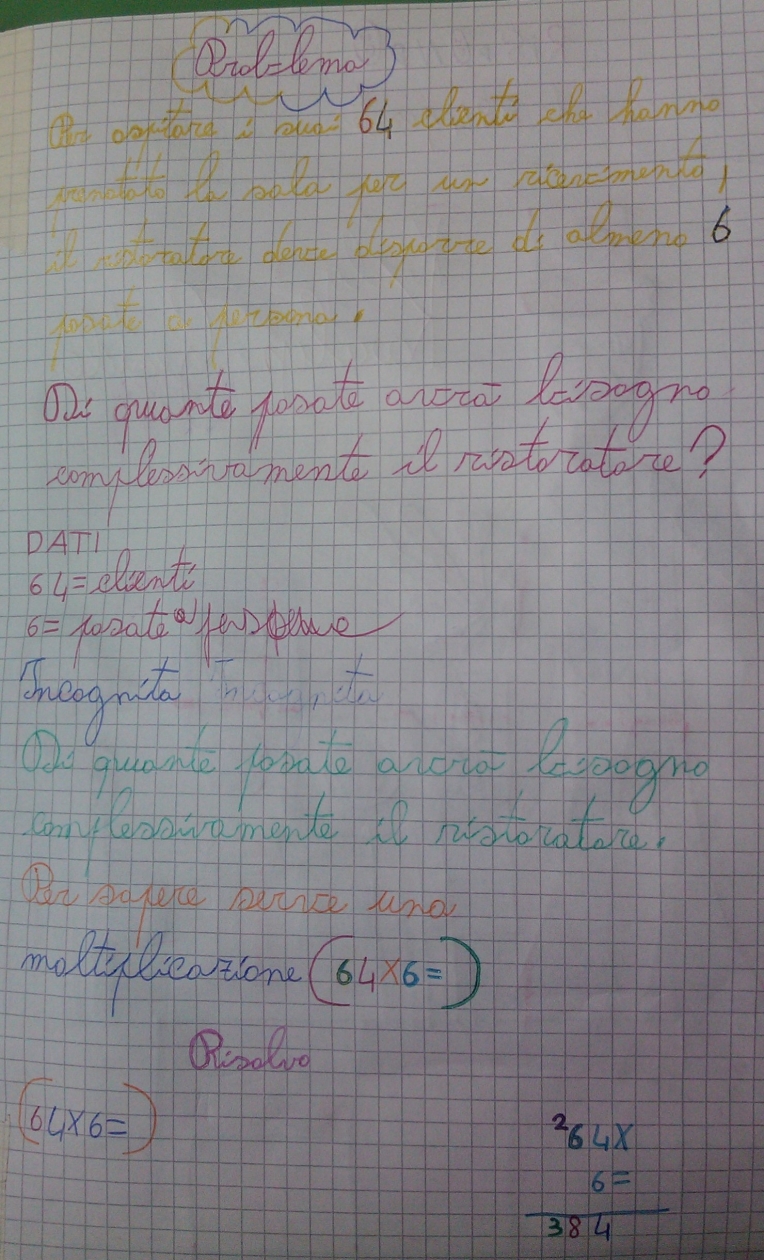 Problema
Per ospitare i suoi 64 clienti che hanno
prenotato la sala per un ricevimento,
il ristoratore deve disporre di almeno 6
posate a persona.
Di quante posate avrà bisogno
complessivamente il ristoratore?
DATI
64=clienti
6= posate a
Incognita Incognita
Di quante posate avrà bisogno
complessivamente il ristoratore.
Per sapere serve una
moltiplicazione (64x6=)
Risolvo
(64x6=)
²64x
6=
384